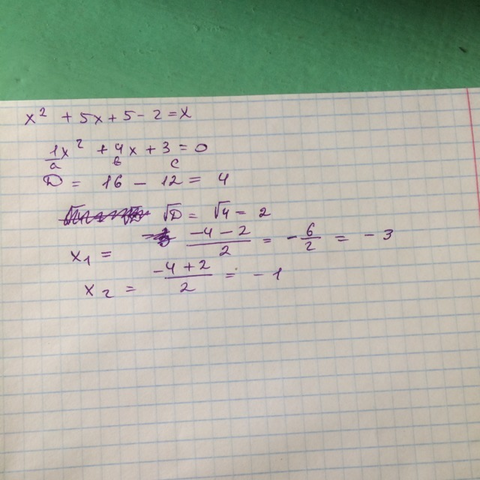 x² + 5x + 5 - 2 = x
1x² + 4x + 3 = 0
a в c
D = 16 - 12 = 4
√D = √4 = 2
x₁ = -4-2/2 = -6/2 = -3
x₂ = -4+2/2 = -1